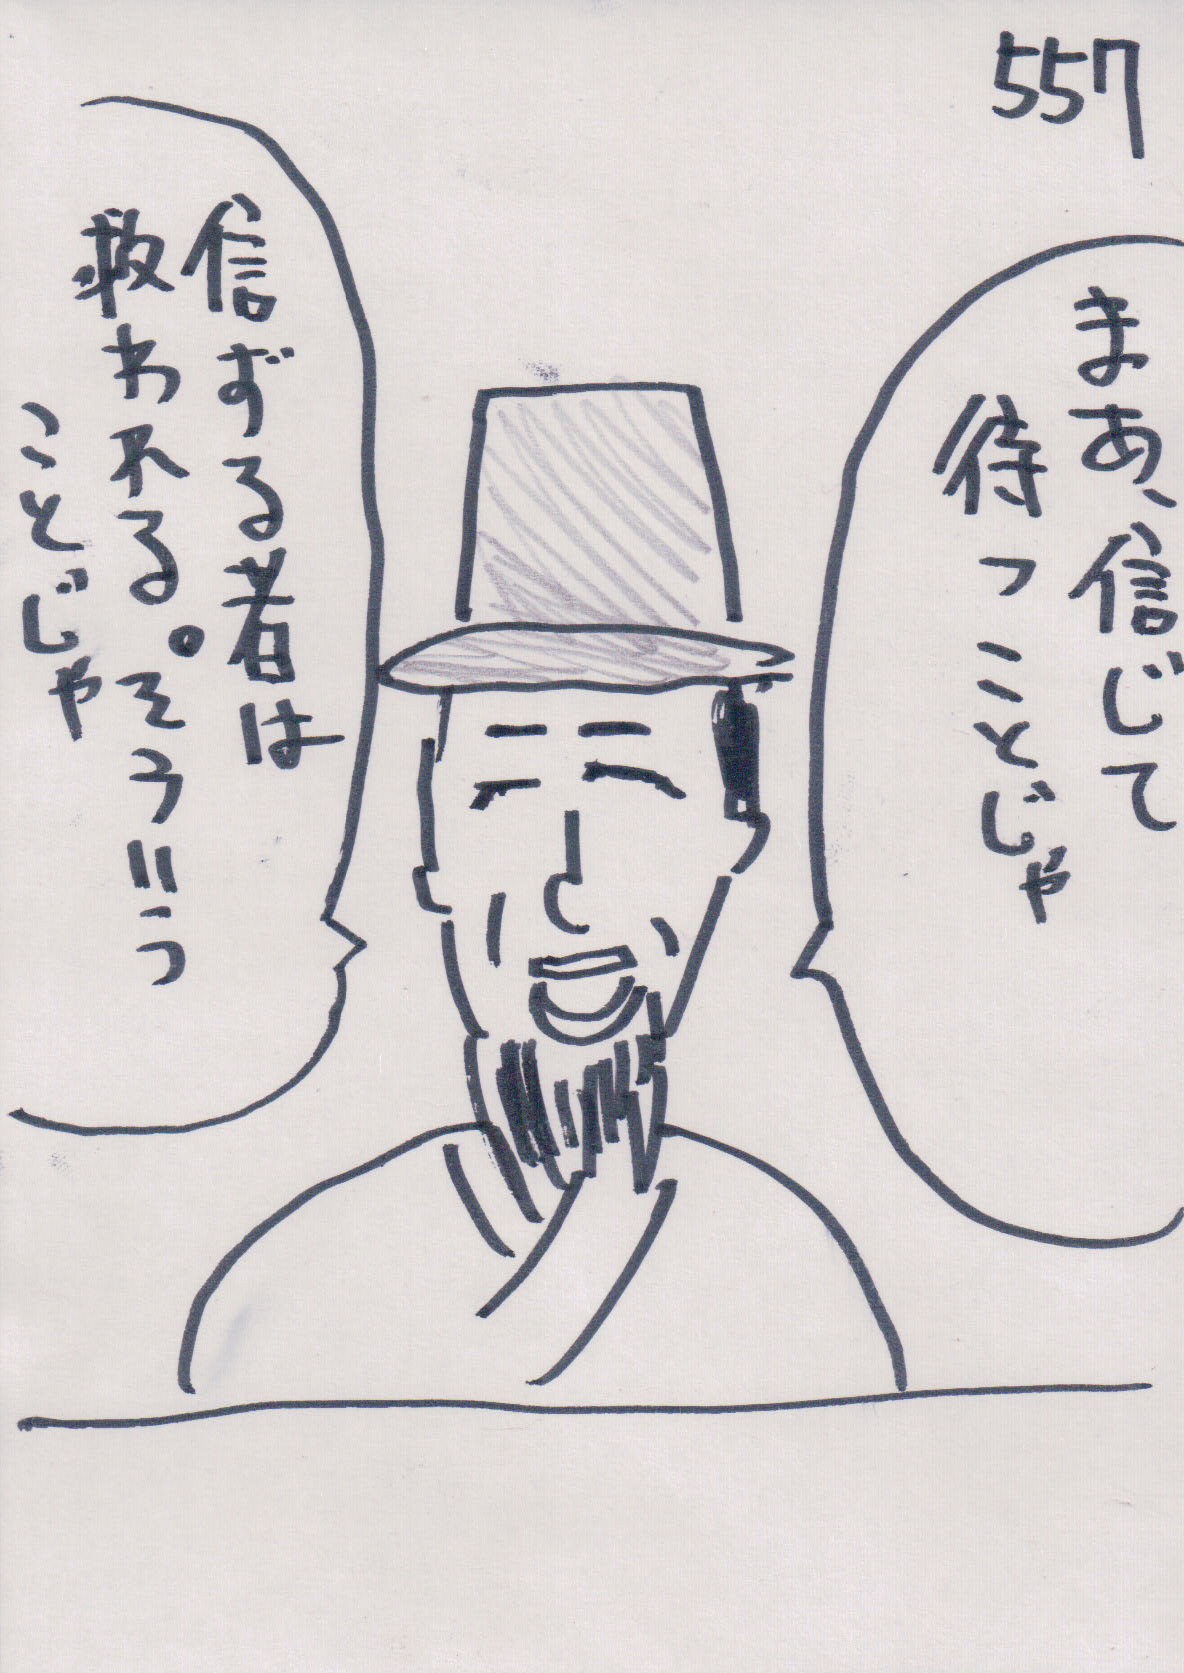 557
まあ、信じて
待つことじゃ
信ずる者は
救われる。そういう
ことじゃ